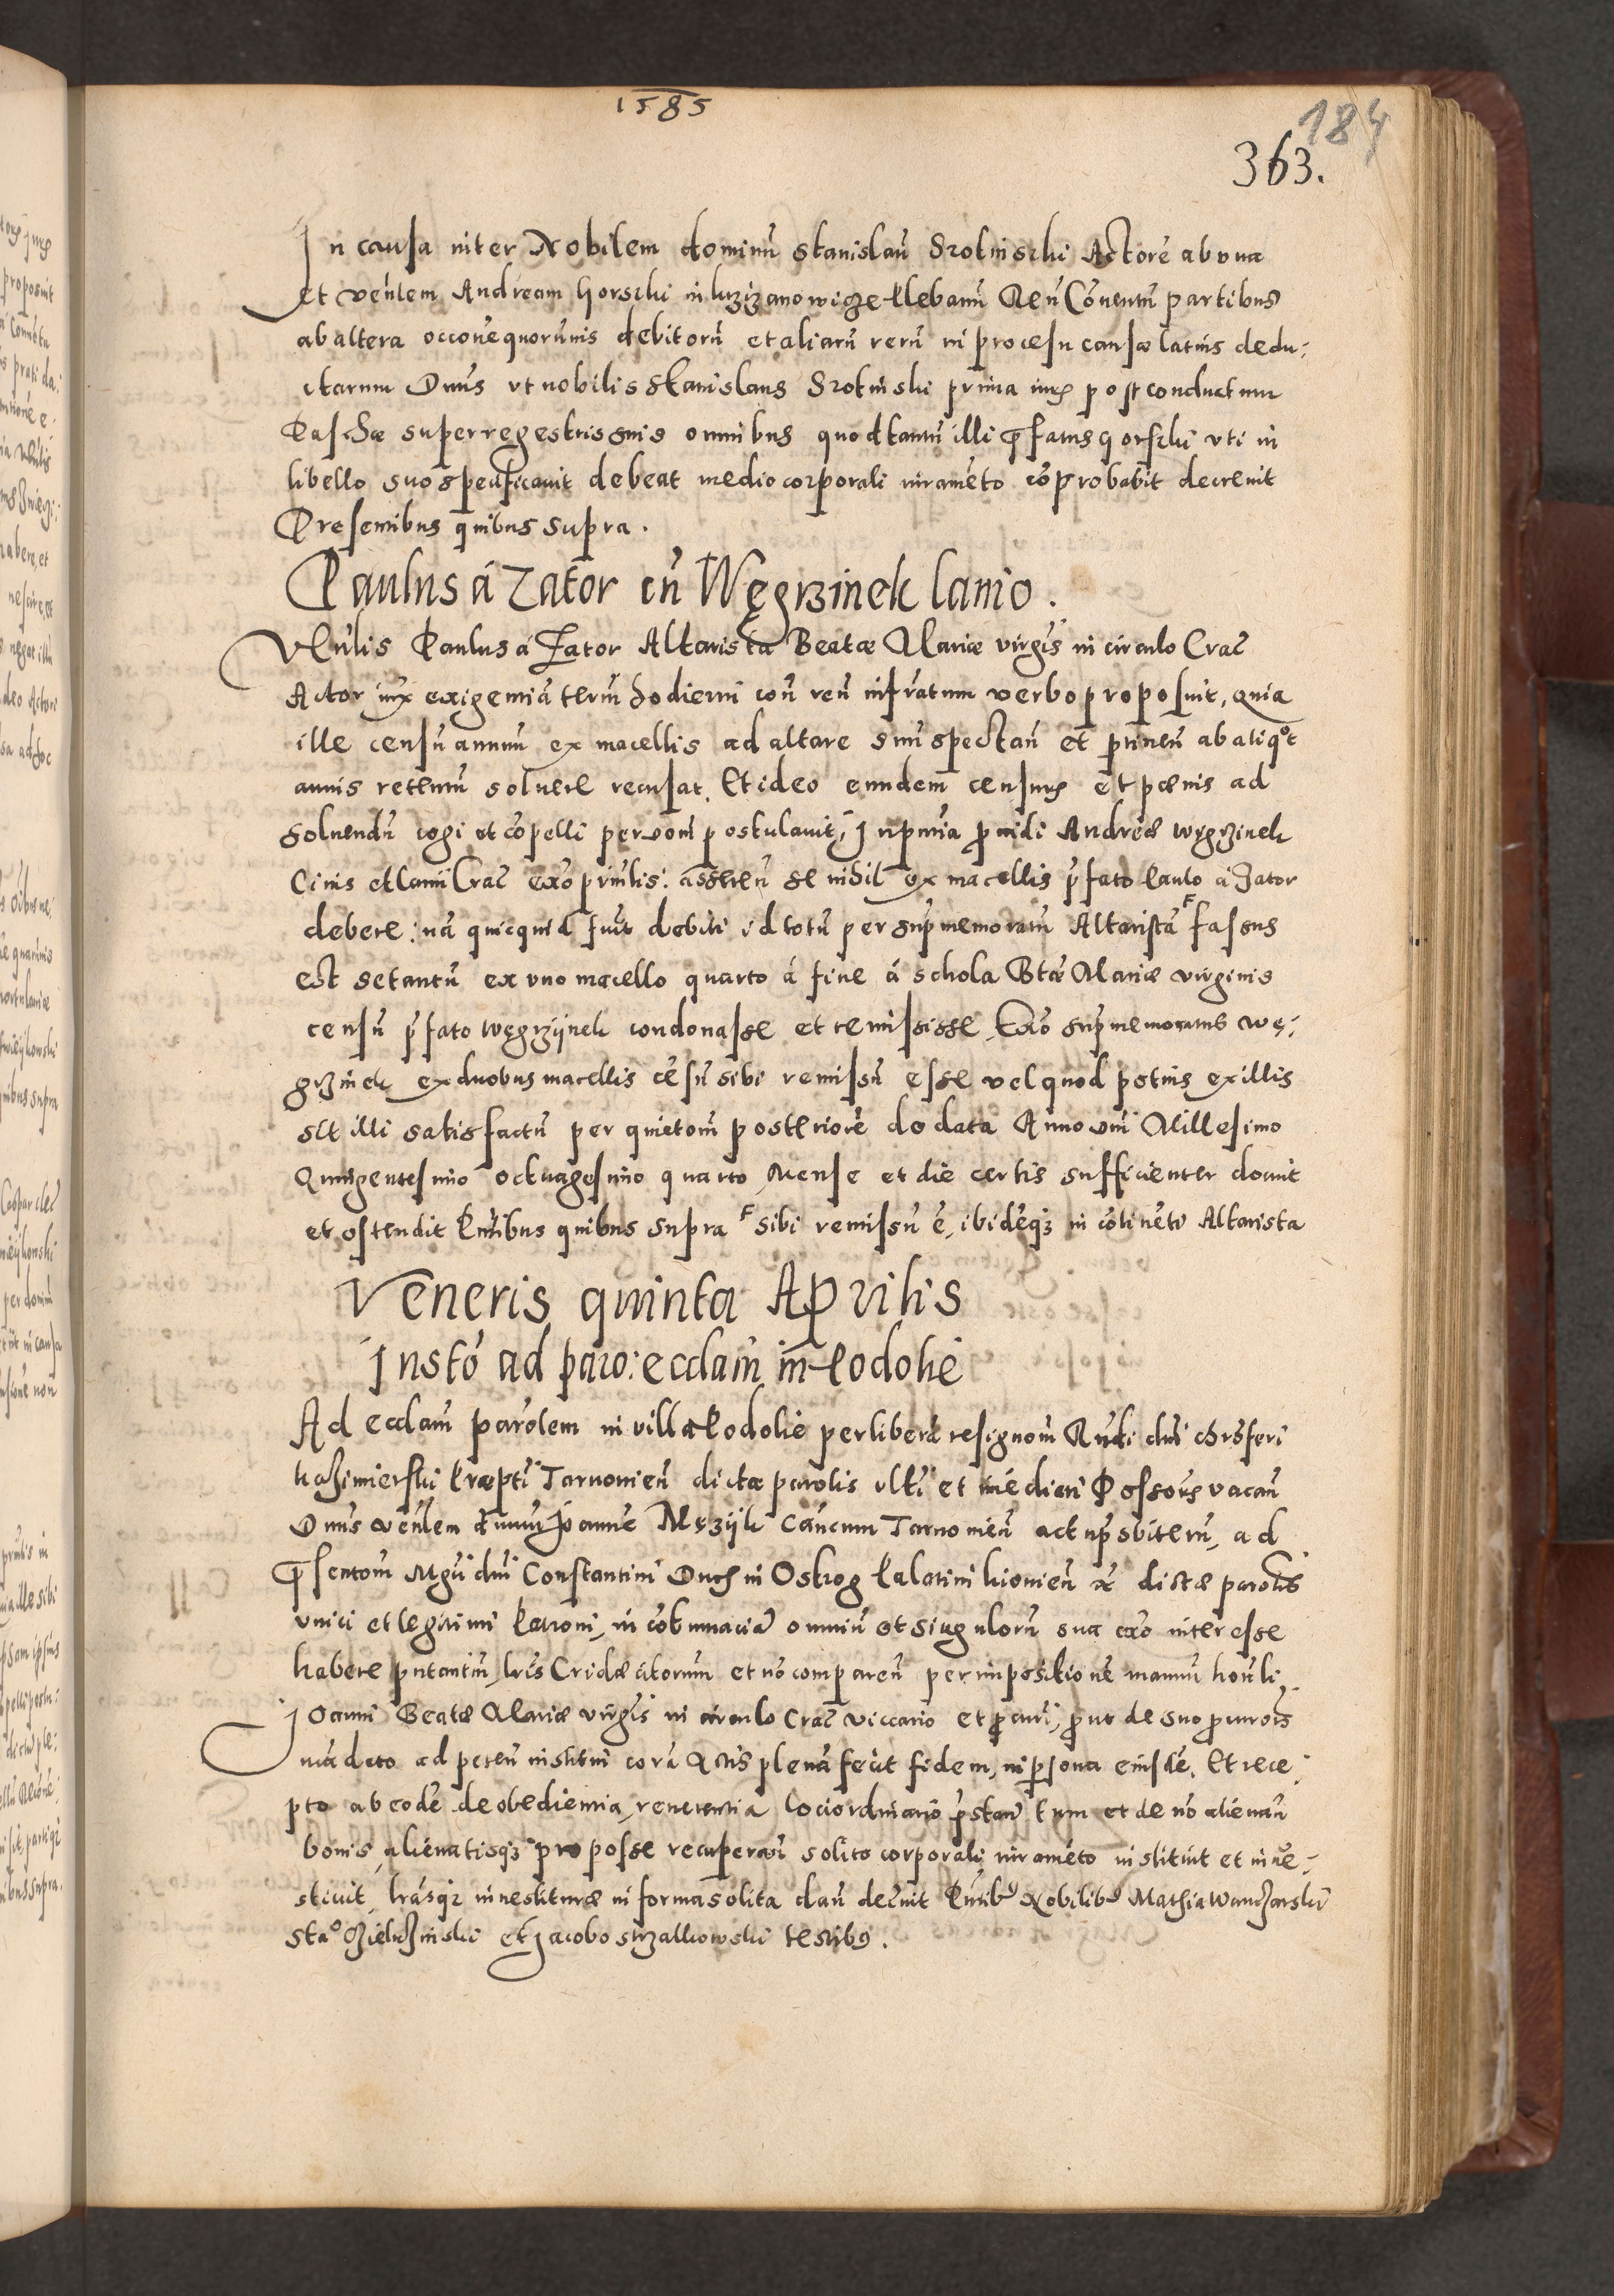 1585
184
363.
In causa inter Nobilem dominū Stanislaū Srotinschi Actorē ab vna
et Veñlem Andream Gorschi in Luzizanowicze Plebanū Reū Cōuentū partibus
ab altera occone quorūuis debitorū et aliarū rerū in procesu causæ latius dedu:
ctarum Dnus vt nobilis Stanislaus Srotinski prima iurs post conductum
Paschæ super regestris suis omnibus quod tantū illi p̄fatus Gorschi vti in
libello suo specificauit debeat medio corporali iuramēto cōprobabit decreuit
Presentibus quibus supra.
Paulus á Zator cū Węgrzinek lanio.
Vēnlis Paulus á Zator Altarista Beatæ Mariæ virgīs in circulo Crac̄
Actor iurx exigentiā term̄ hodierni con̄ reū infratum verbo proposuit, quia
ille censū annuū ex macellis ad altare suū spectan̄ et ptineñ ab aliqᵒt
annis retentū soluere recusat, Et ideo eundem censum et pœnis ad
soluendū cogi et cōpelli per dom̄ postulauit, In pn̄tia prouidi Andreæ Węgrzinek
Ciuis et lanii Crac̄ exo prinlis: asseren̄ se nihil ex macellis p̄fato Paulo á Zator
debere: nā quicquid fuit debiti id totū per supmemoratū Altaristā ꟻ fassus
est se tantū ex vno macello quarto á fine á schola Btæ Mariæ virginis
censū p̄fato Węgrziinek condonasse et remisisse, Exo supmemoratus Wę:
grzinek ex duobus macellis cēsū sibi remissū esse vel quod potius ex illis
sit illi satisfactū per quietom̄ posteriorē do data Anno dnī Millesimo
Quingentesimo octuagesimo quarto, Mense et die certis sufficienter docuit
et ostendit Pn̄tibus quibus supra ꟻ sibi remissū ē, ibidēqz in cōtinēti Altarista
Veneris quinta Aprilis
Insto ad paro: ecclam̄ in Podolie
Ad ecclam̄ parolem in villa Podolie per liberā resignom̄ Rndi dnī Chrsferi
Kazimierski Præpti Tarnouien̄ dictæ parolis vlti et īmediati Possoris vacan̄
Dnus Veñlem dnum Joannē Mężyk Cancum Tarnouien̄ act p̄sbiterū, ad
p̄sentom̄ Mgci dnī Constantini Ducis in Ostrog Palatini Kiouien̄ &c dictæ parolis
vnici et legitimi Patroni, in cōtumaciā omniū et singulorū sua exo interesse
habere putantiū lrīs Cridæ citorum et nō comparen̄ per impositionē manuū honli
Joanni Beatæ Mariæ virgīs in circulo Crac̄ viccario et procuri, prout de suo procurors
mādato ad peten̄ institui corā Actis plenā fecit fidem, in psona eiusdē. Et rece:
pto ab eodē de obedientia, reuerentia loci ordinario p̄stan̄ tum et de nō alienan̄
bonis, alienatisqz pro posse recuperan̄ solito corporali iuramēto instituit et inue:
stiuit, lrāsqz inuestituræ in forma solita dan̄ decreuit Pn̄tibꝰ Nobilibꝰ Mathia Wandzarski
Staᵒ Zieliszinski et Jacobo Strzalkowski testibꝰ.